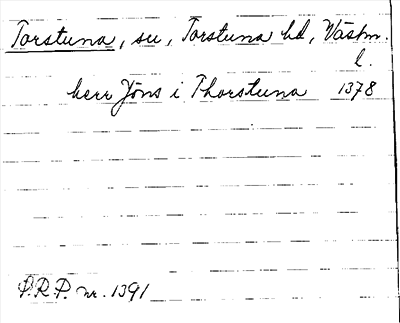 Torstuna, sn, Torstuna hd, Västm.
l.
herr Jöns i Thorstuna 1378
P.R.P. nr. 1391